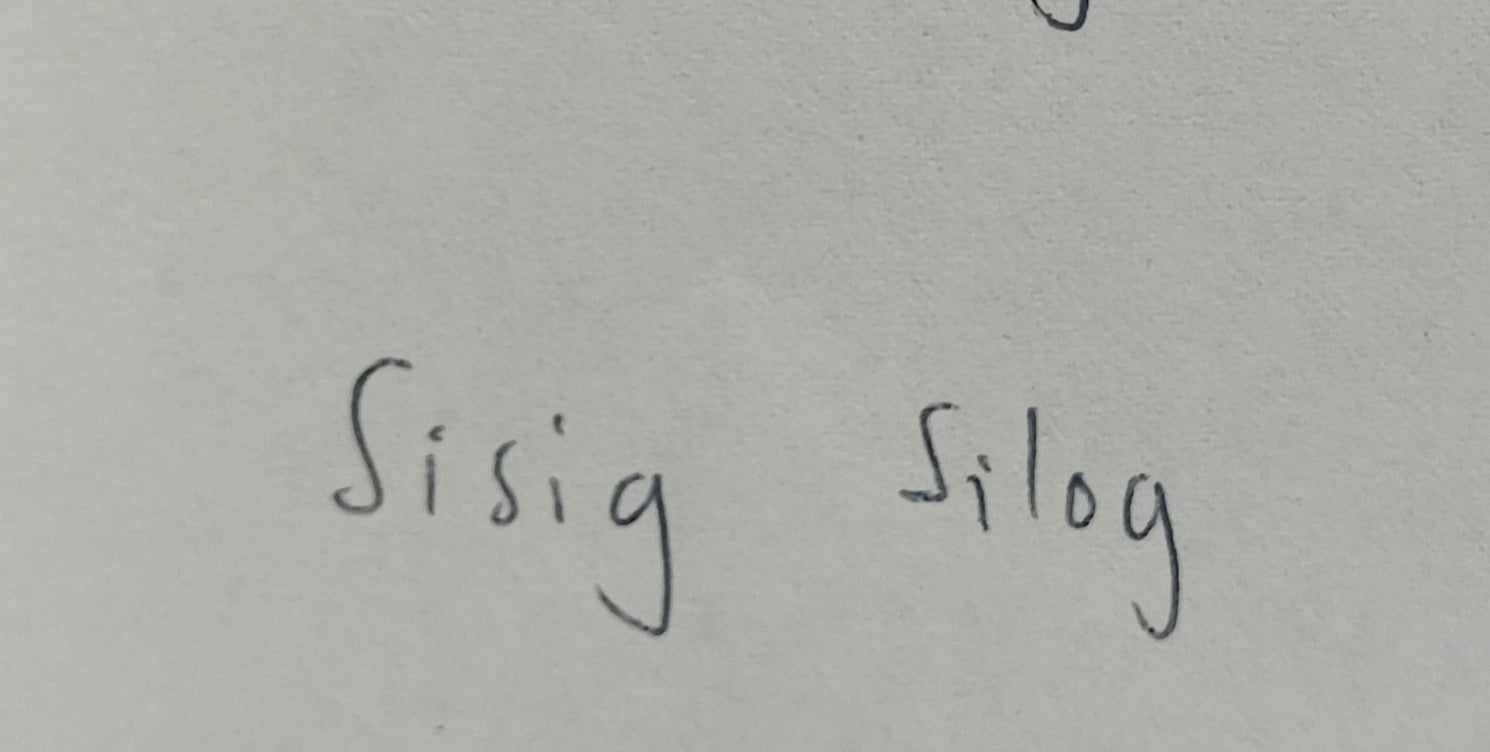 Sisig Silog